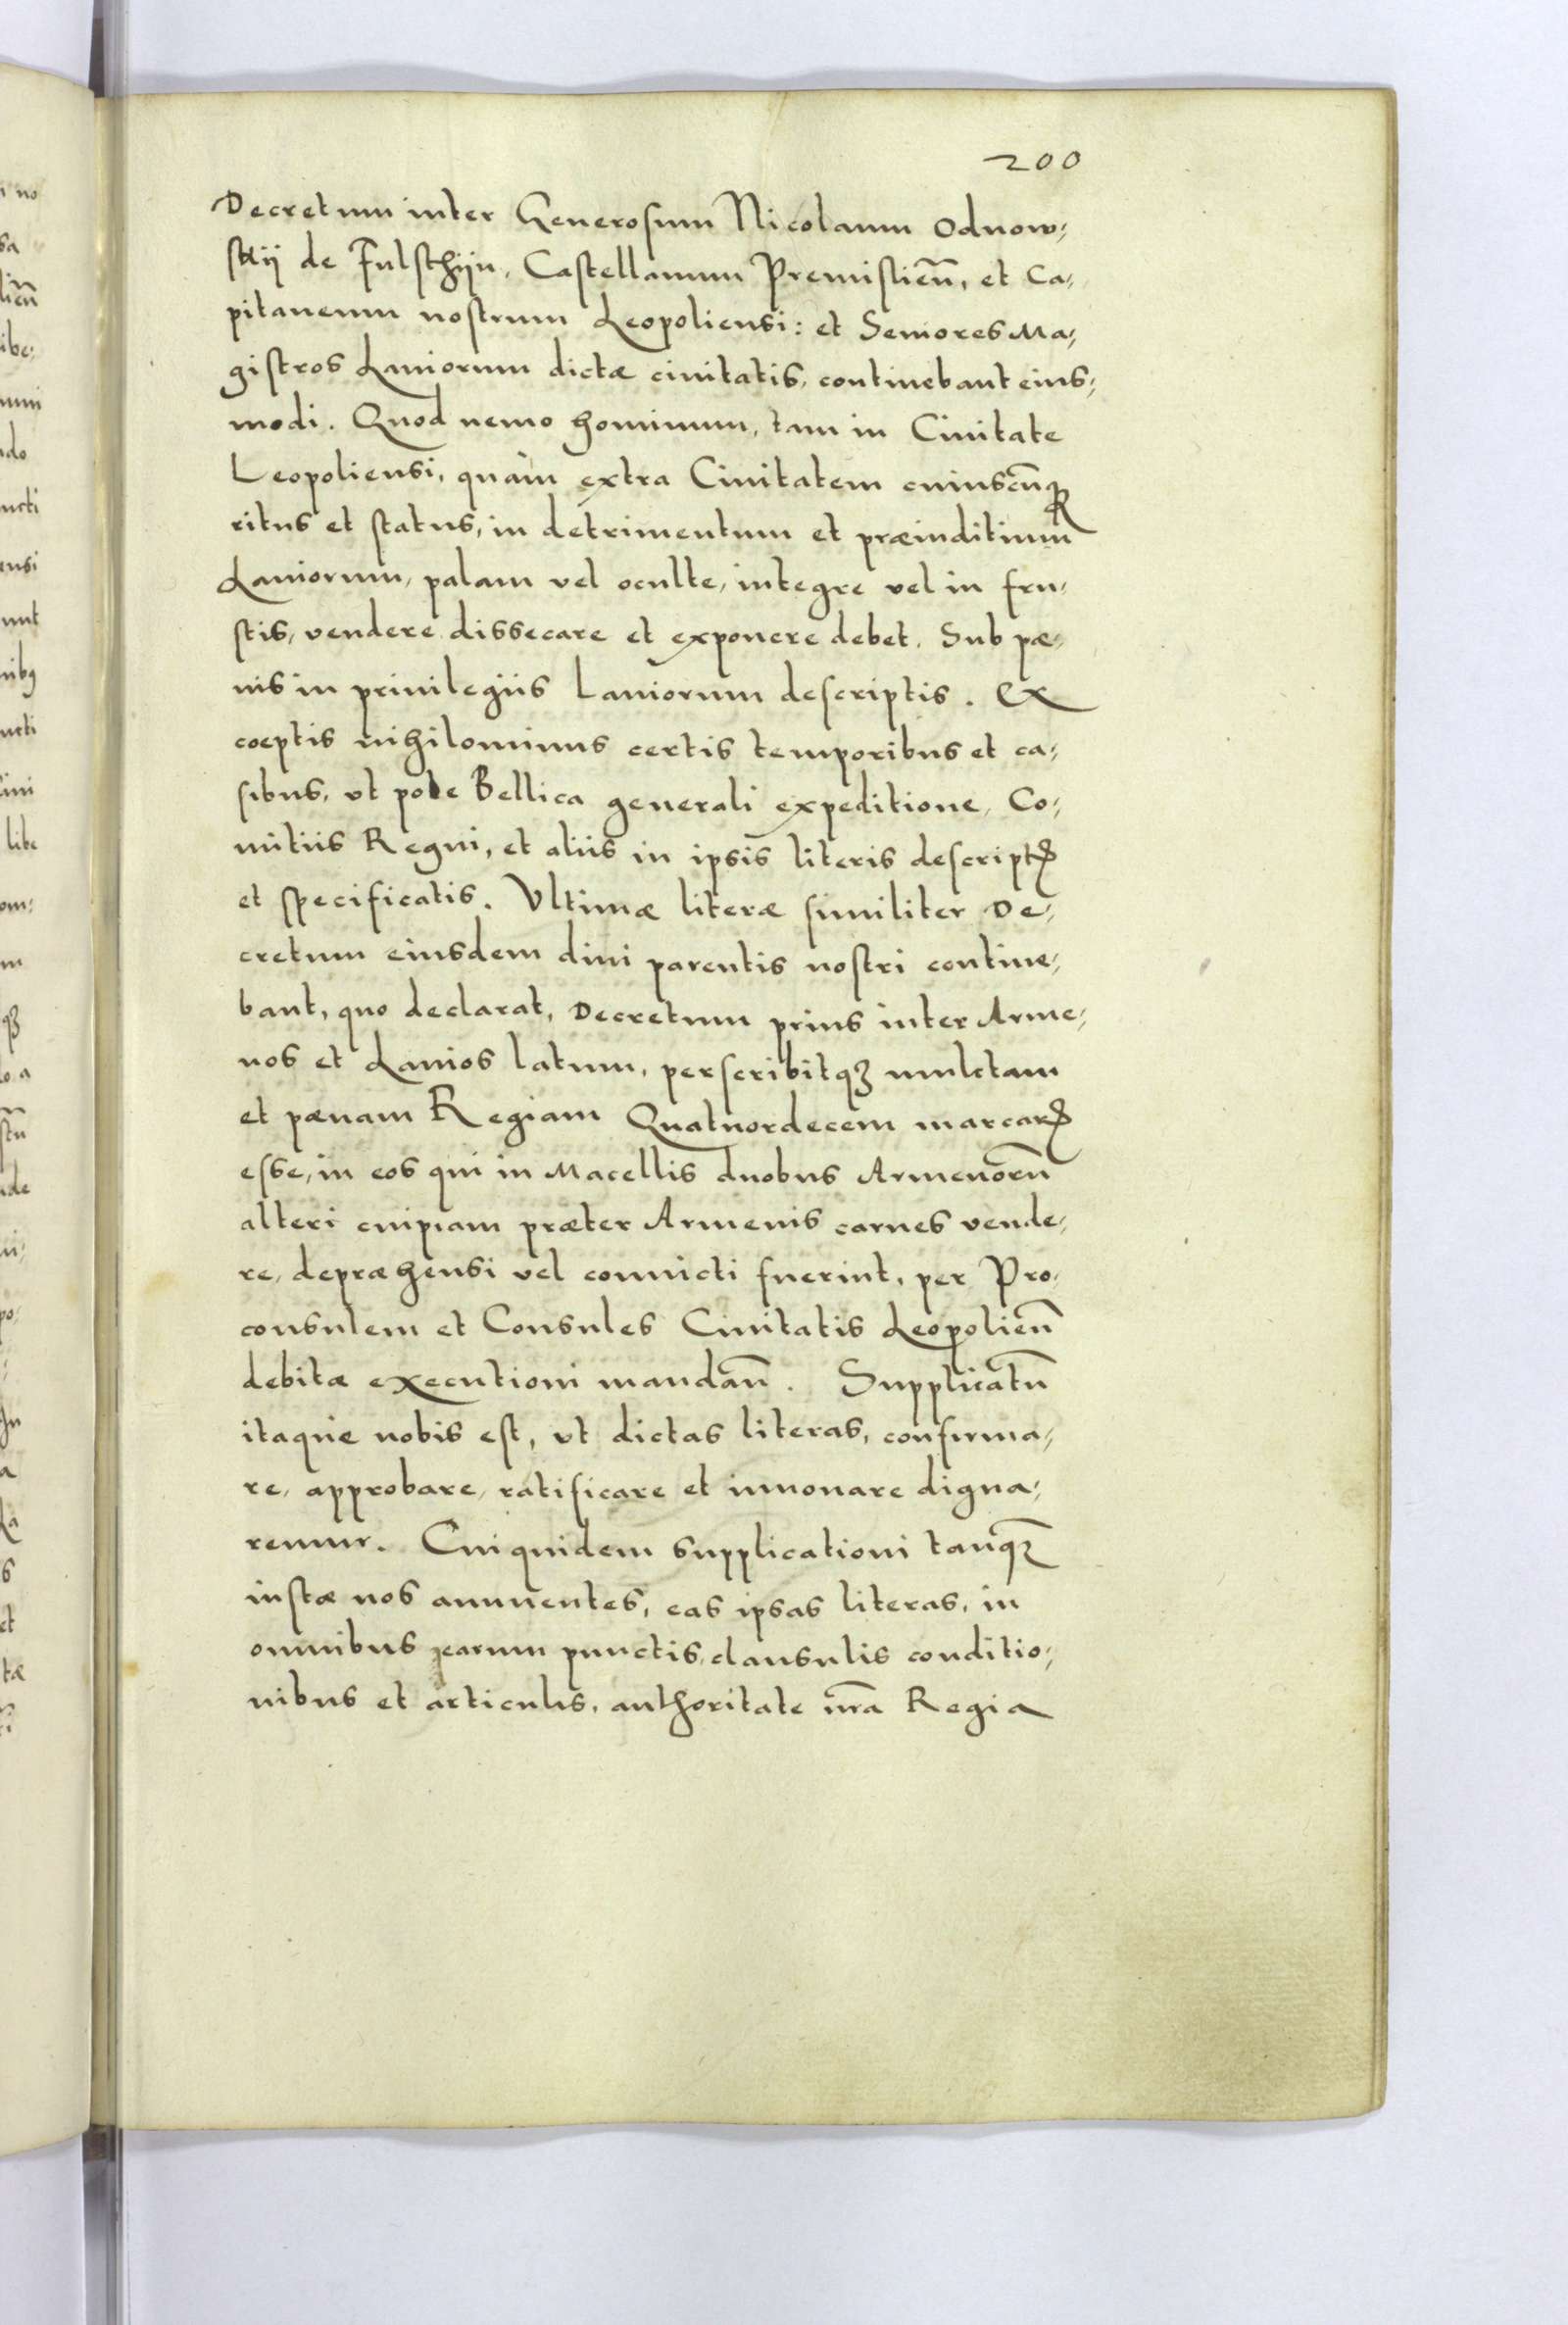 200
Decretum inter Generosum Nicolaum Odnow;
skij de Fulsthijn, Castellanum Premislieñ, et Ca;
pitaneum nostrum Leopoliensi: et Seniores Ma;
gistros Laniorum dictæ ciuitatis, continebant eius;
modi. Quod nemo hominum, tam in Ciuitate
Leopoliensi, quàm extra Ciuitatem cuiuscũqꝫ
ritus et status, in detrimentum et præiuditium
Laniorum, palam vel oculte, integre vel in fru;
stis, vendere dissecare et exponere debet. Sub pæ;
nis in priuilegiis Laniorum descriptis. Ex
coeptis nihilominus certis temporibus et ca;
sibus, vt pote Bellica generali expeditione, Co;
mitiis Regni, et aliis in ipsis literis descriptꝭ
et specificatis. Vltimæ literæ similiter De;
cretum eiusdem diui parentis nostri contine;
bant, quo declarat, Decretum prius inter Arme;
nos et Lanios latum, perscribitqꝫ mulctam
et pænam Regiam Quatuordecem marcarꝭ
esse, in eos qui in Macellis duobus Armenorũ
alteri cuipiam præter Armenis carnes vende;
re, depræhensi vel conuicti fuerint, per Pro;
consulem et Consules Ciuitatis Leopolieñ
debitæ executioni mandañ. Supplicatũ
itaque nobis est, vt dictas literas, confirma;
re, approbare, ratificare et innouare digna;
remur. Cuiquidem supplicationi tanqꝫ
iustæ nos annuentes, eas ipsas literas, in
omnibus earum punctis, clausulis conditio;
nibus et articulis, authoritate nr̃a Regia